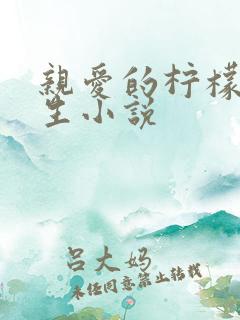 親愛的柠檬
生小说
吕大妈
未经同意禁止转载